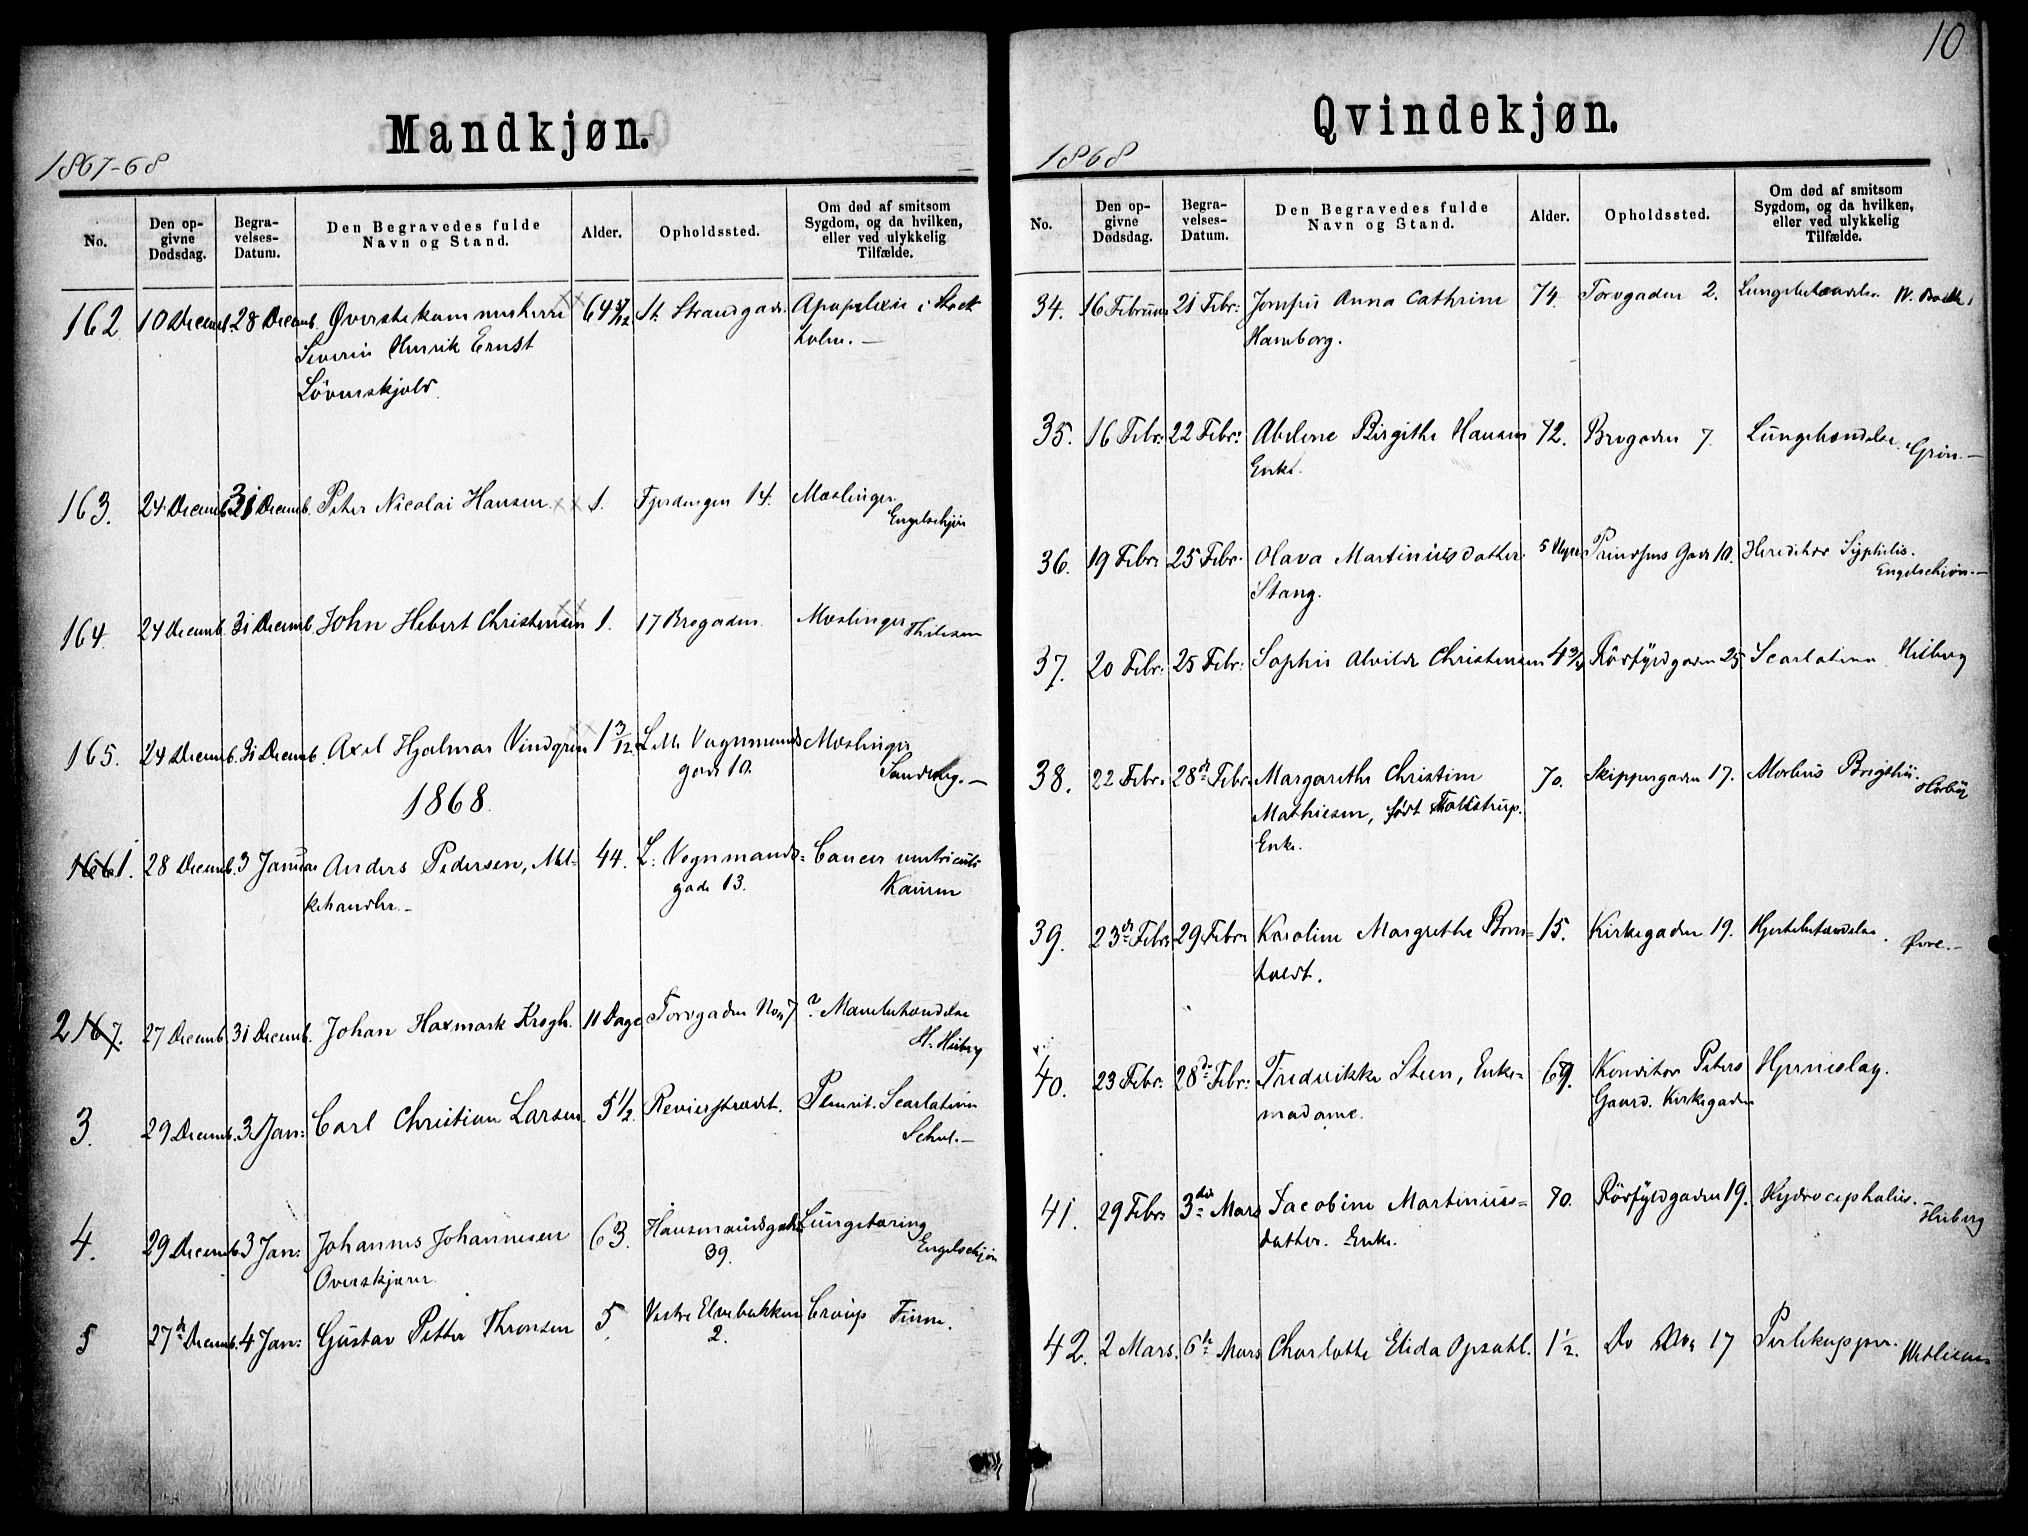 10
Mandkjøn.
1867-68
No.
Den op-
givne
Dødsdag.
Begra-
velses-
Datum.
Den Begravedes fulde
Navn og Stand.
Alder.
Opholdssted.
Om død af smitsom
Sygdom, og da hvilken,
eller ved ulykkelig
Tilfælde.
162 10 Decemb. 28 Decemb. Øverstekammerherre 64 St. Strandgade Apoplexie i Stock
Severin Henrik Ernst holm.
Løvenskjold.
163. 24 Decemb. 31 Decemb. Peter Nicolai Hansen 1. Fjerdingen 14. Mæslinger
Engelschjøn
164. 24 Decemb. 31 Decemb. John Hebert Christensen 1. 17 Brogaden. Mæslinger Thilesen
165. 24 Decemb. 31 Decemb. Axel Hjalmar Vindgren 1 3/12. Lille Vognmands Mæslinger
gade 10.
1868.
1. 28 Decemb. 3 Januar Anders Pedersen, Mel- 44. L: Vognmands- Cancer ventriculi
kehandler. gade 13. Kaurin
2 167. 27 Decemb. 31 Decemb. Johan Haxmark Krogh. 11 Dage Torvgaden No 7 ?
3. 29 Decemb. 3 Jan: Carl Christian Larsen 5 1/2 Revierstrædet. Pleurit. Scarlatina
4. 29 Decemb. 3 Jan: Johannes Johannesen 63. Hausmansgade Lungetæring
39. Engelschjøn
Overskjærer
5 27de Decemb. 4 Jan: Gustav Petter Thronsen 5. Vestre Elvebakken Croup Finne.
2.
Qvindekjøn.
1868
No.
Den op-
givne
Dødsdag.
Begra-
velses-
Datum.
Den Begravedes fulde
Navn og Stand.
Alder.
Opholdssted.
Om død af smitsom
Sygdom, og da hvilken,
eller ved ulykkelig
Tilfælde.
34. 16 Februar 21 Febr: Jomfru Anna Cathrine 74. Torvgaden 2. Lungebetændelse.
Hamborg.
35. 16 Febr: 22 Febr: Abelene Birgithe Hansen 72. Brogaden 7. Lungebetændelse.
Enke. Grøn.
36. 19 Febr: 25 Febr: Olava Martiniusdatter 5 Uger Prinsens Gade 10. Hereditær Syphilis.
Stang. Engelschjøn.
37. 20 Febr: 25 Febr: Sophie Alvilde Christensen 4 3/4 Rørfyldgaden 25 Scarlatina Heiberg
38. 22 Febr: 28de Febr: Margarethe Christine 70. Skippergaden 17. Morbus Brigthii.
Mathiesen, født Toltstrup.
Enke.
39. 23de Febr: 29 Febr: Karoline Margrethe Born- 15. Kirkegaden 19. Hjertebetændelse.
holdt.
40. 23 Febr: 28de Febr: Fredrikke Steen, Enke- 69. Konditor Peters Hjerneslag.
madame. Gaard. Kirkegaden
41. 29 Febr: 3die Mars Jacobine Martinius- 70. Rørfyldgaden 19. Hydrocephalus.
datter. Enke. Heiberg
42. 2 Mars. 6te Mars Charlotte Elida Opsahl. 1 1/2. Do No 17